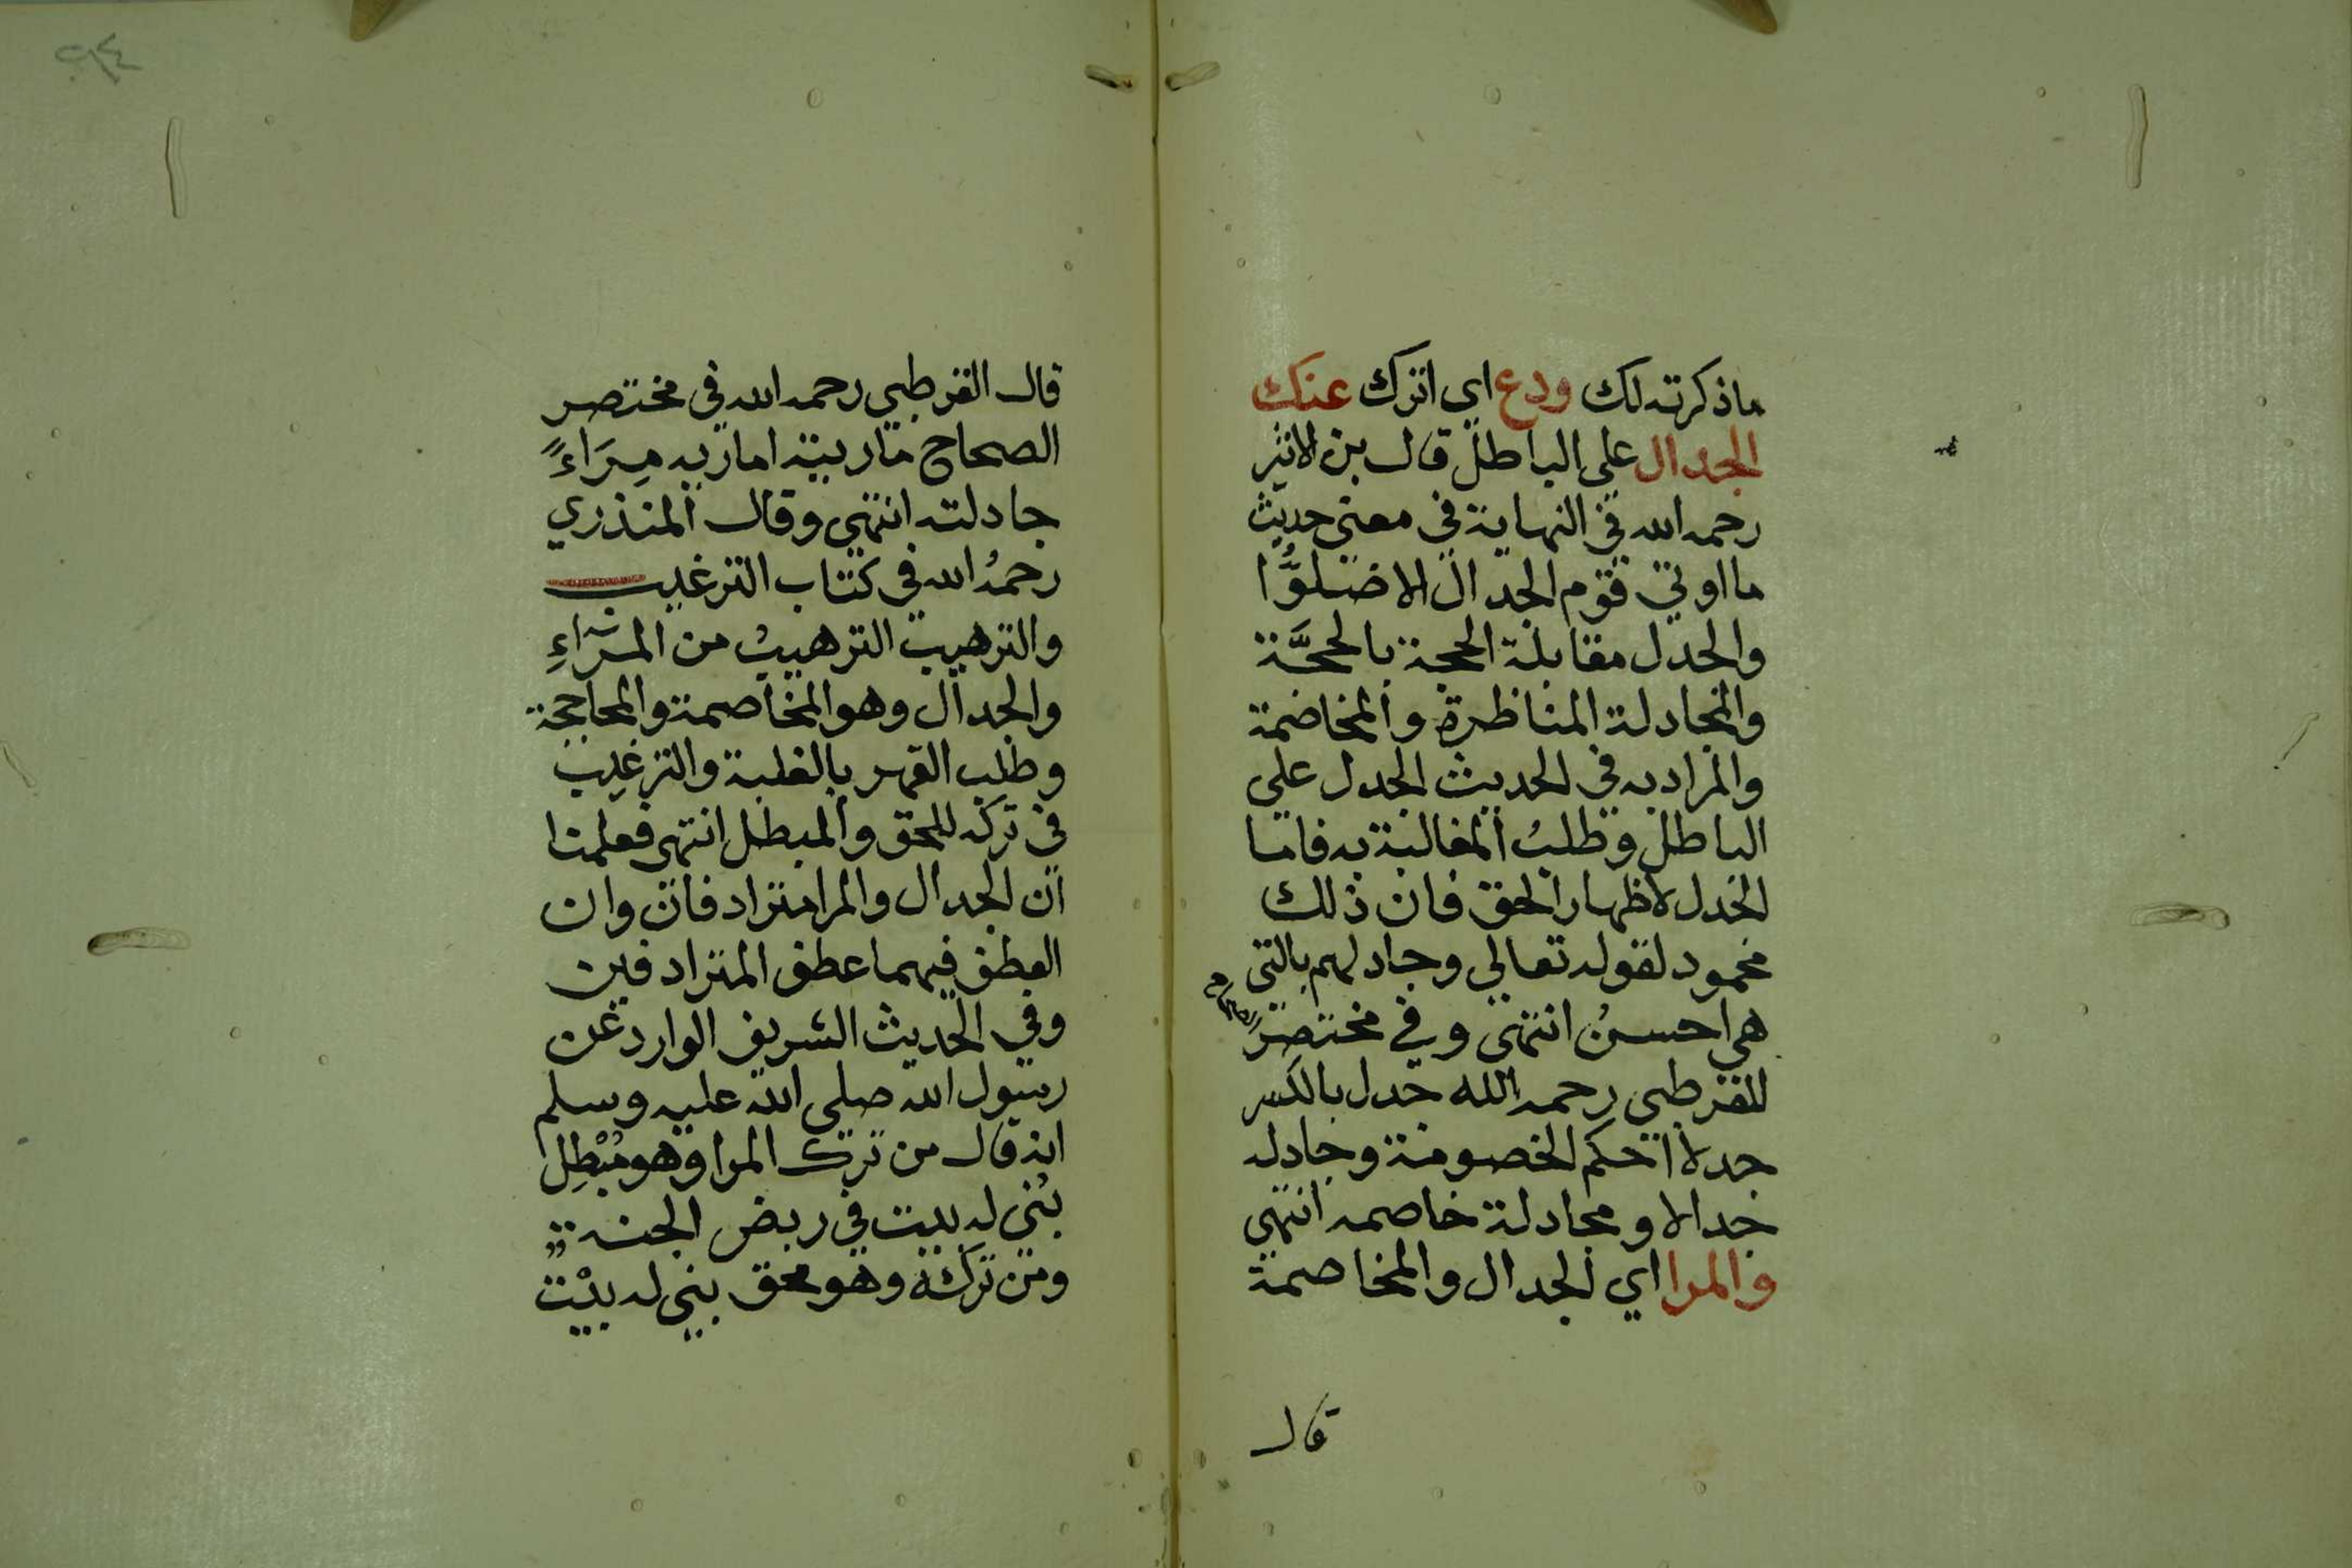 ماذكرته لك ودع اي اترك عنك
الجدال على الباطل قال بن الاثير
رحمه الله في النهاية في معنى حديث
ما اوتي قوم الجدال الا ضلوُّا
والجدل مقابلة الحجة بالحجَّة
والمجادلة المناظرة والمخاصمة
والمراد به في الحديث الجدل على
الباطل وطلبُ المغالبة به فاما
الجدل لاظهار الحق فان ذلك
محمود لقوله تعالى وجادلهم بالتي
هي احسنُ انتهى وفي مختصر الصحاح
للقرطبي رحمه الله جدل بالكسر
جدلا احكم الخصومة وجادله
جدالا ومجادلة خاصمه انتهى
والمرا اي الجدال والمخاصمة
قال
قال القرطبي رحمه الله في مختصر
الصحاح ماريته اماريه مِرَاءً
جادلته انتهى وقال المنذري
رحمهُ الله في كتاب الترغيب
والترهيب الترهيبُ من المرَآءِ
والجدال وهو المخاصمة والمحاججة
وطلب القهر بالغلبة والترغيب
في تركه للمحق والمبطل انتهى فعلمنا
ان الجدال والمرا مترادفان وان
العطف فيهما عطف المترادفين
وفي الحديث الشريف الوارد عن
رسول الله صلى الله عليه وسلم
انه قال من ترك المرا وهو مُبْطِل
بُني له بيت في ربض الجنة
ومن تركه وهو محق بني له بيْت